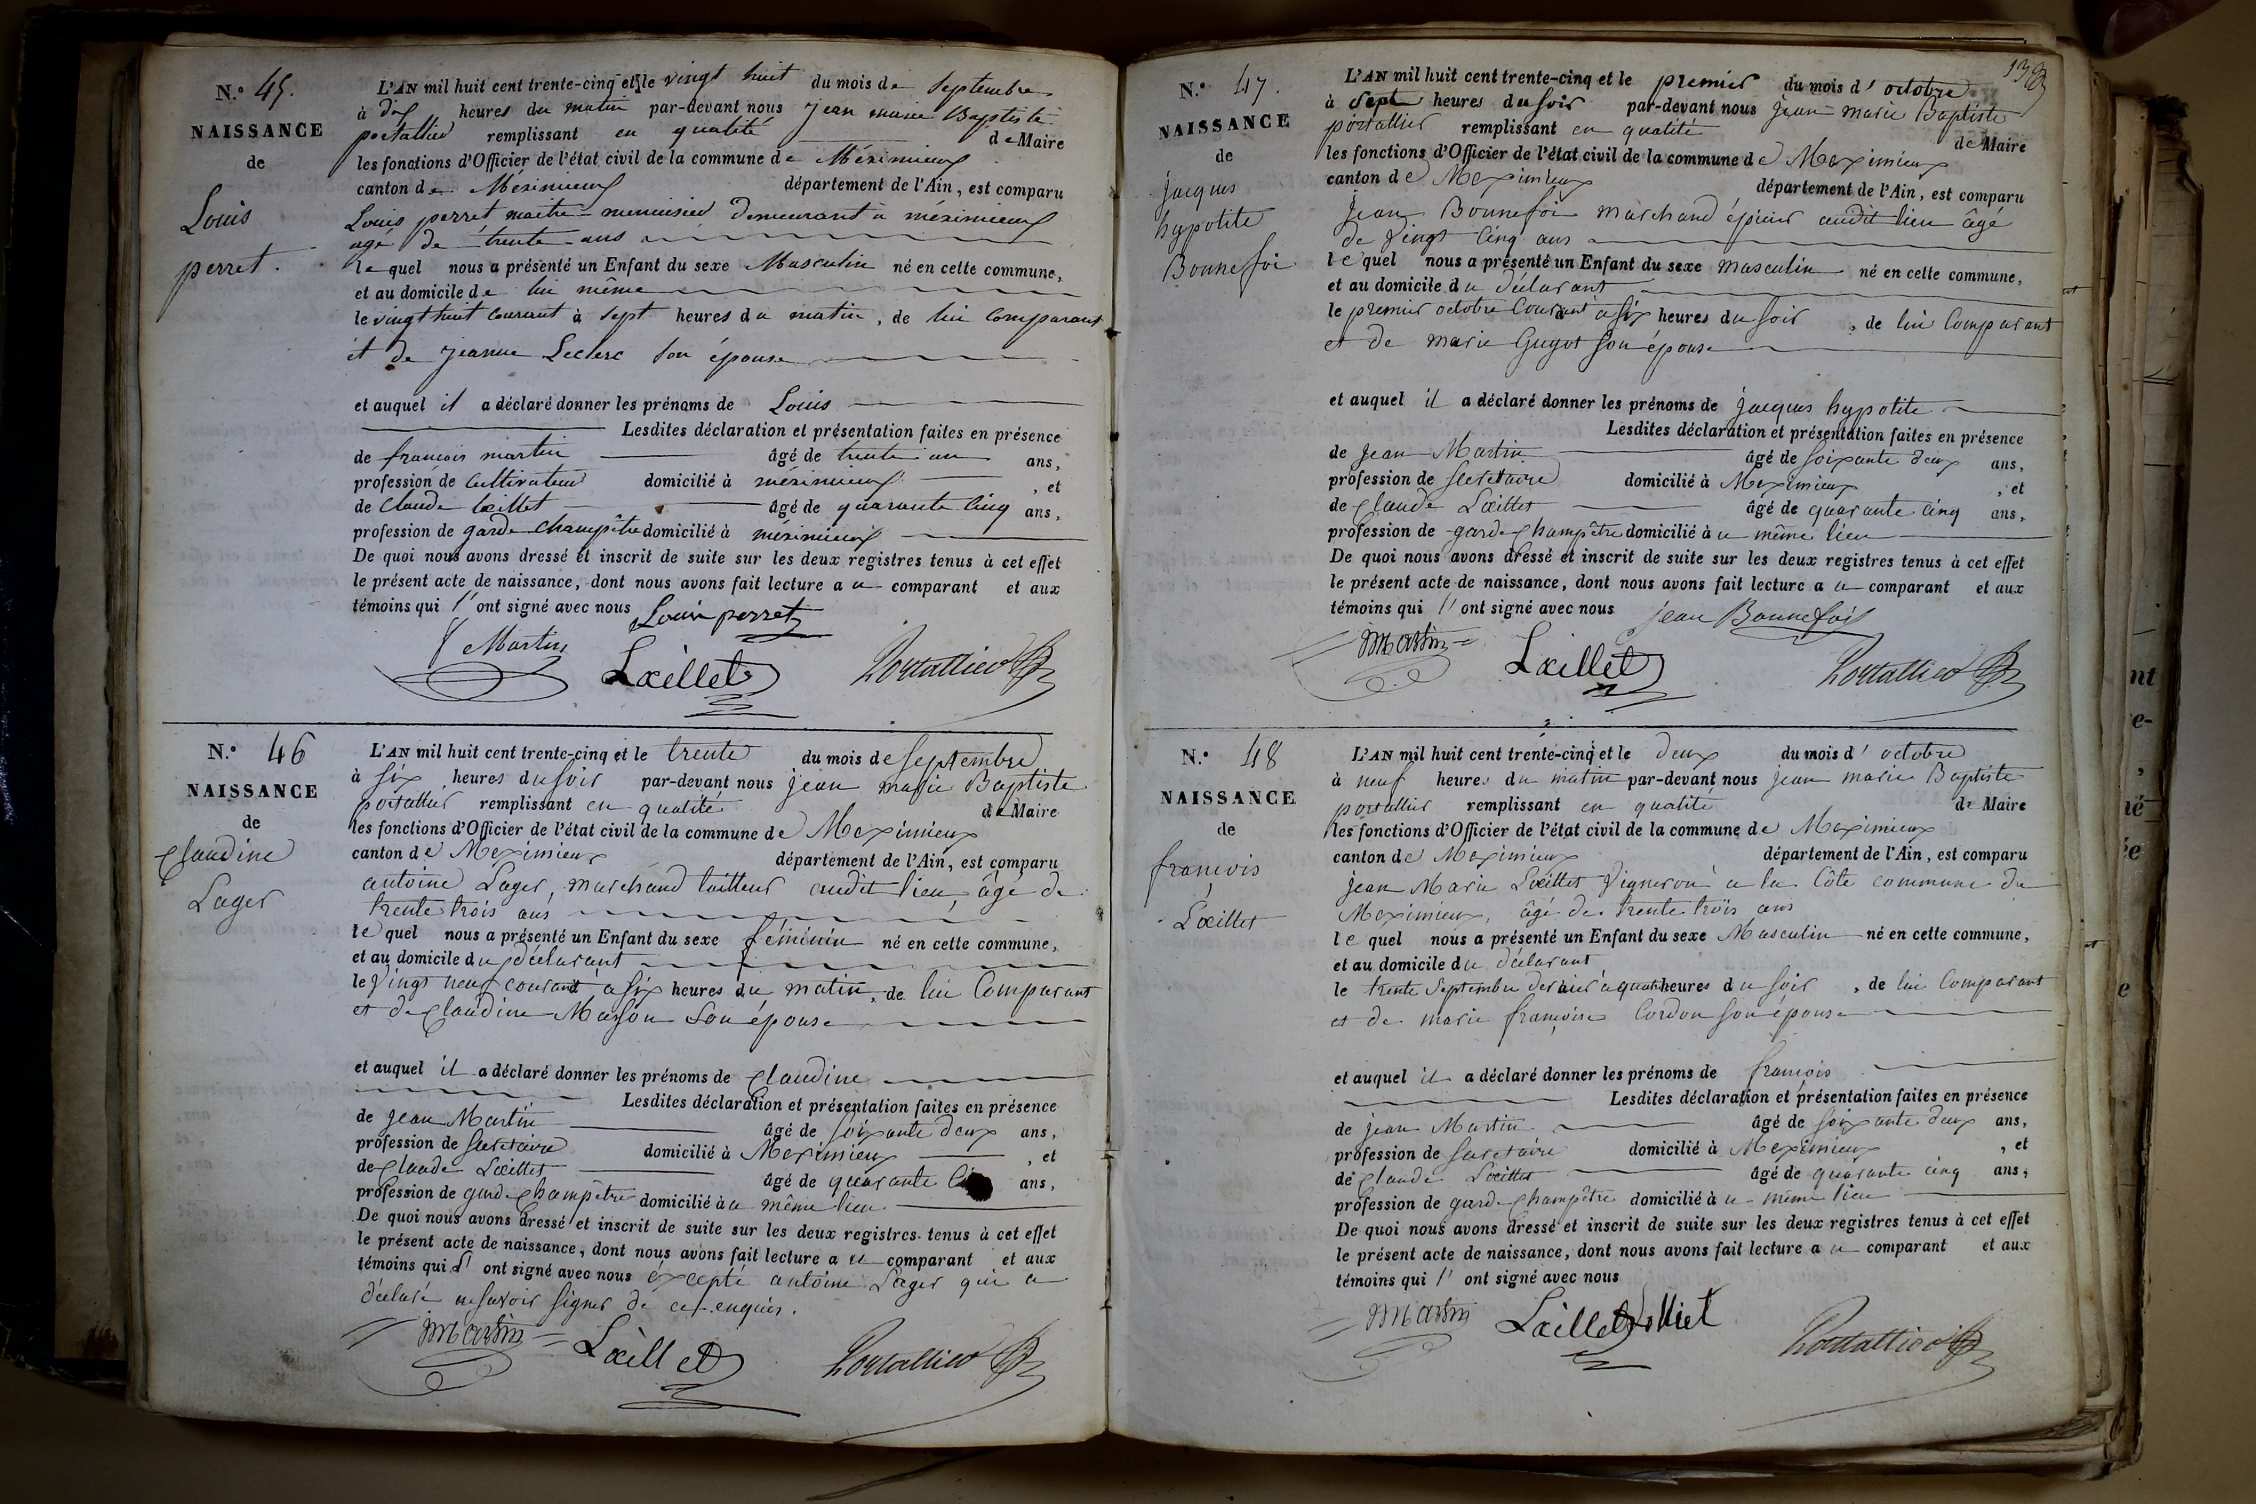 N.o 45.
NAISSANCE
de
Louis
perret.
L'AN mil huit cent trente-cinq et le vingt huit du mois de septembre
à dix heures du matin par-devant nous jean marie Baptiste
portallier remplissant en qualité de Maire
les fonctions d'Officier de l'état civil de la commune de Méximieux
canton de Méximieux département de l'Ain, est comparu
Louis perret maitre menuisier demeurant à méximieux
agé de trente ans
le quel nous a présenté un Enfant du sexe Masculin né en cette commune,
et au domicile de lui même
le vingt huit courant à sept heures du matin, de lui Comparant
et de jeanne Leclerc son épouse
et auquel il a déclaré donner les prénoms de Louis
Lesdites déclaration et présentation faites en présence
de francois martin âgé de trente un ans,
profession de Cultivateur domicilié à méximieux, et
de Claude Lœillet âgé de quarante Cinq ans,
profession de garde Champêtre domicilié à méximieux
De quoi nous avons dressé et inscrit de suite sur les deux registres tenus à cet effet
le présent acte de naissance, dont nous avons fait lecture au comparant et aux
témoins qui l' ont signé avec nous Louis perret
Martin Lœillet Portallier
N.o 46
NAISSANCE
de
Claudine
Lager
L'AN mil huit cent trente-cinq et le trente du mois de septembre
à six heures du soir par-devant nous jean marie Baptiste
portallier remplissant en qualité de Maire
les fonctions d'Officier de l'état civil de la commune de Meximieux
canton de Meximieux département de l'Ain, est comparu
antoine Lager, marchand tailleur audit lieu, âgé de
trente trois ans
le quel nous a présenté un Enfant du sexe féminin né en cette commune,
et au domicile du déclarant
le vingt neuf courant à six heures du matin, de lui Comparant
et de Claudine Masson son épouse
et auquel il a déclaré donner les prénoms de Claudine
Lesdites déclaration et présentation faites en présence
de jean Martin âgé de soixante deux ans,
profession de secretaire domicilié à Meximieux, et
de Claude Lœillet âgé de quarante ans,
profession de garde Champêtre domicilié au même lieu
De quoi nous avons dressé et inscrit de suite sur les deux registres tenus à cet effet
le présent acte de naissance, dont nous avons fait lecture au comparant et aux
témoins qui l' ont signé avec nous éxcepté antoine Lager qui a
déclaré ne savoir signer de ce enquis.
Martin Lœillet Portallier
138
N.o 47.
NAISSANCE
de
jacques
hypolite
Bonnefoi
L'AN mil huit cent trente-cinq et le premier du mois d' octobre
à sept heures du soir par-devant nous jean marie Baptiste
portallier remplissant en qualité de Maire
les fonctions d'Officier de l'état civil de la commune de Meximieux
canton de Meximieux département de l'Ain, est comparu
jean Bonnefoi marchand épicier audit lieu âgé
de vingt cinq ans
le quel nous a présenté un Enfant du sexe masculin né en cette commune,
et au domicile du déclarant
le premier octobre Courant à six heures du soir, de lui Comparant
et de marie Guyot son épouse
et auquel il a déclaré donner les prénoms de jacques hypolite
Lesdites déclaration et présentation faites en présence
de jean Martin âgé de soixante deux ans,
profession de secretaire domicilié à Meximieux, et
de Claude Lœillet âgé de quarante cinq ans,
profession de garde Champêtre domicilié au même lieu
De quoi nous avons dressé et inscrit de suite sur les deux registres tenus à cet effet
le présent acte de naissance, dont nous avons fait lecture au comparant et aux
témoins qui l' ont signé avec nous jean Bonnefois
Martin Lœillet Portallier
N.o 48
NAISSANCE
de
francois
Lœillet
L'AN mil huit cent trente-cinq et le deux du mois d' octobre
à neuf heures du matin par-devant nous jean marie Baptiste
portallier remplissant en qualité de Maire
les fonctions d'Officier de l'état civil de la commune de Meximieux
canton de Meximieux département de l'Ain, est comparu
jean Marie Lœillet vigneron à la Côte commune de
Meximieux, âgé de trente trois ans
le quel nous a présenté un Enfant du sexe Masculin né en cette commune,
et au domicile du déclarant
le trente Septembre dernier à quatre heures du soir, de lui Comparant
et de marie françoise Cordon son épouse
et auquel il a déclaré donner les prénoms de francois
Lesdites déclaration et présentation faites en présence
de jean Martin âgé de soixante deux ans,
profession de secretaire domicilié à Meximieux, et
de Claude Lœillet âgé de quarante cinq ans,
profession de garde Champêtre domicilié au même lieu
De quoi nous avons dressé et inscrit de suite sur les deux registres tenus à cet effet
le présent acte de naissance, dont nous avons fait lecture au comparant et aux
témoins qui l' ont signé avec nous
Martin Lœillet Portallier